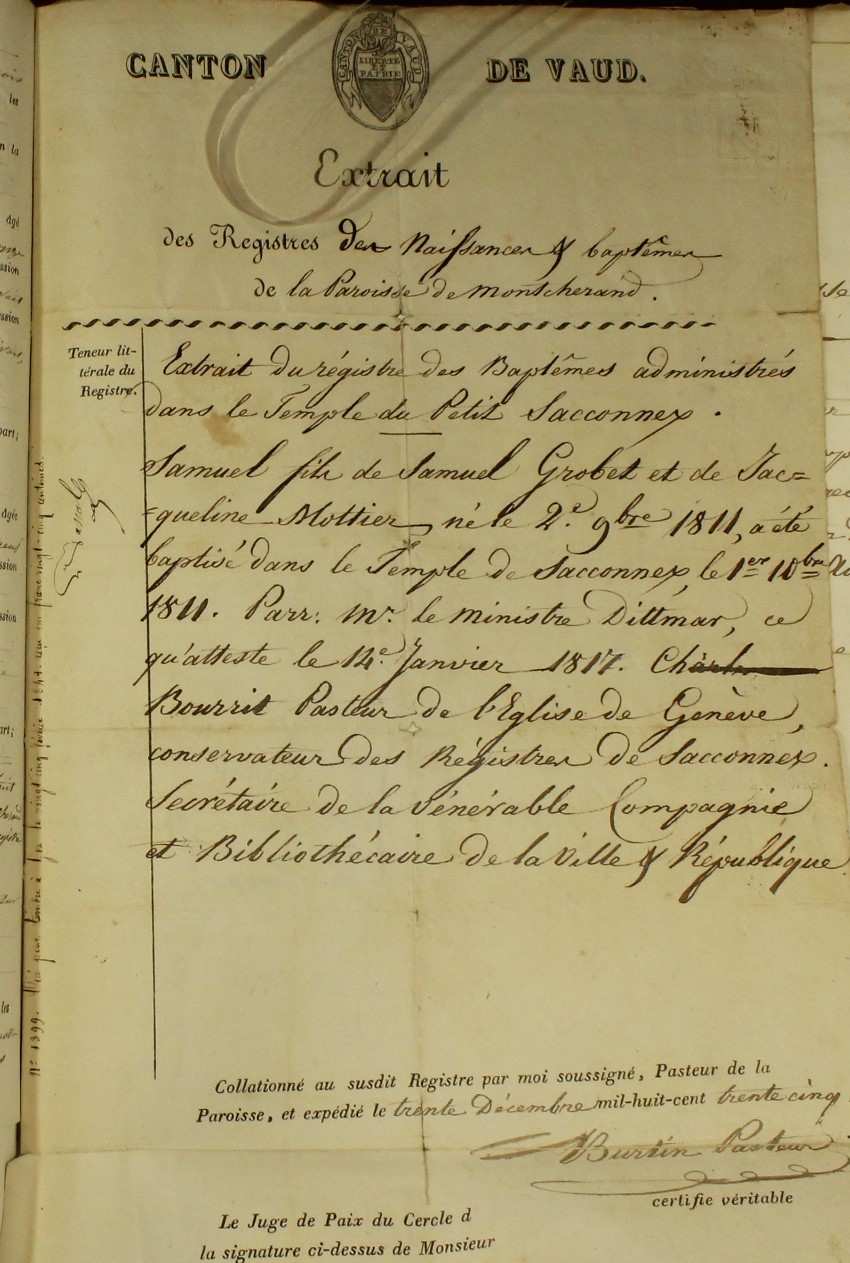 CANTON DE VAUD.
CANTON DE VAUD
LIBERTÉ
ET
PATRIE
Extrait
des Registres des Naissances & baptêmes
de la Paroisse de Montcherand.
Teneur lit-
térale du
Registre.
Extrait du régistre des Baptêmes administrés
dans le Temple du Petit Sacconnex.
Samuel fils de Samuel Grobet et de Jac=
=queline Mottier, né le 2e. 9bre 1811, a été
baptisé dans le Temple de Sacconnex, le 1er 10bre
1811. Parr: Mr. le Ministre Dittmar, ce
qu'atteste le 14e. Janvier 1817. Charles
Bourrit Pasteur de l'Eglise de Genève,
conservateur des Régistres de Sacconnex.
Secrétaire de la Vénérable Compagnie
et Bibliothécaire de la Ville & République
Nº 1399.
Collationné au susdit Registre par moi soussigné, Pasteur de la
Paroisse, et expédié le trente Décembre mil-huit-cent trente cinq
Bursin Pasteur
certifie véritable
Le Juge de Paix du Cercle d
la signature ci-dessus de Monsieur